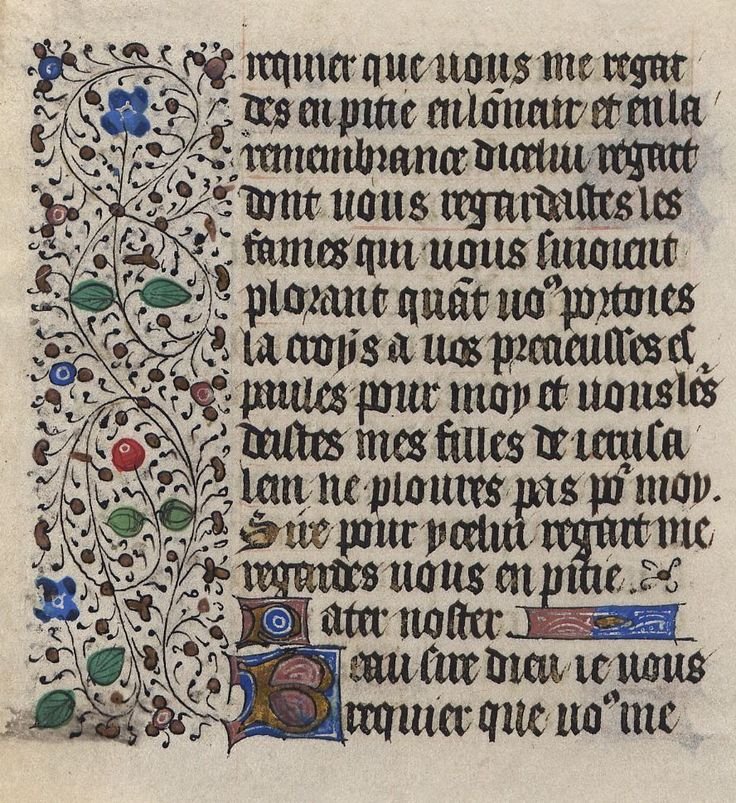 requier que vous me regar
des en pitie en lōneur et en la
remembrance dicelui regart
dont vous regardastes les
fames qui vous sivoient
plorant quāt voꝰ portoies
la croys a vos precieusses es
paules pour moy et vous les
deistes mes filles de ierusa
lem ne ploures pas poͬ moy.
Sire pour ycelui regart me
regardes vous en pitie.
Pater noster
Beau sire dieu ie vous
requier que voꝰ me